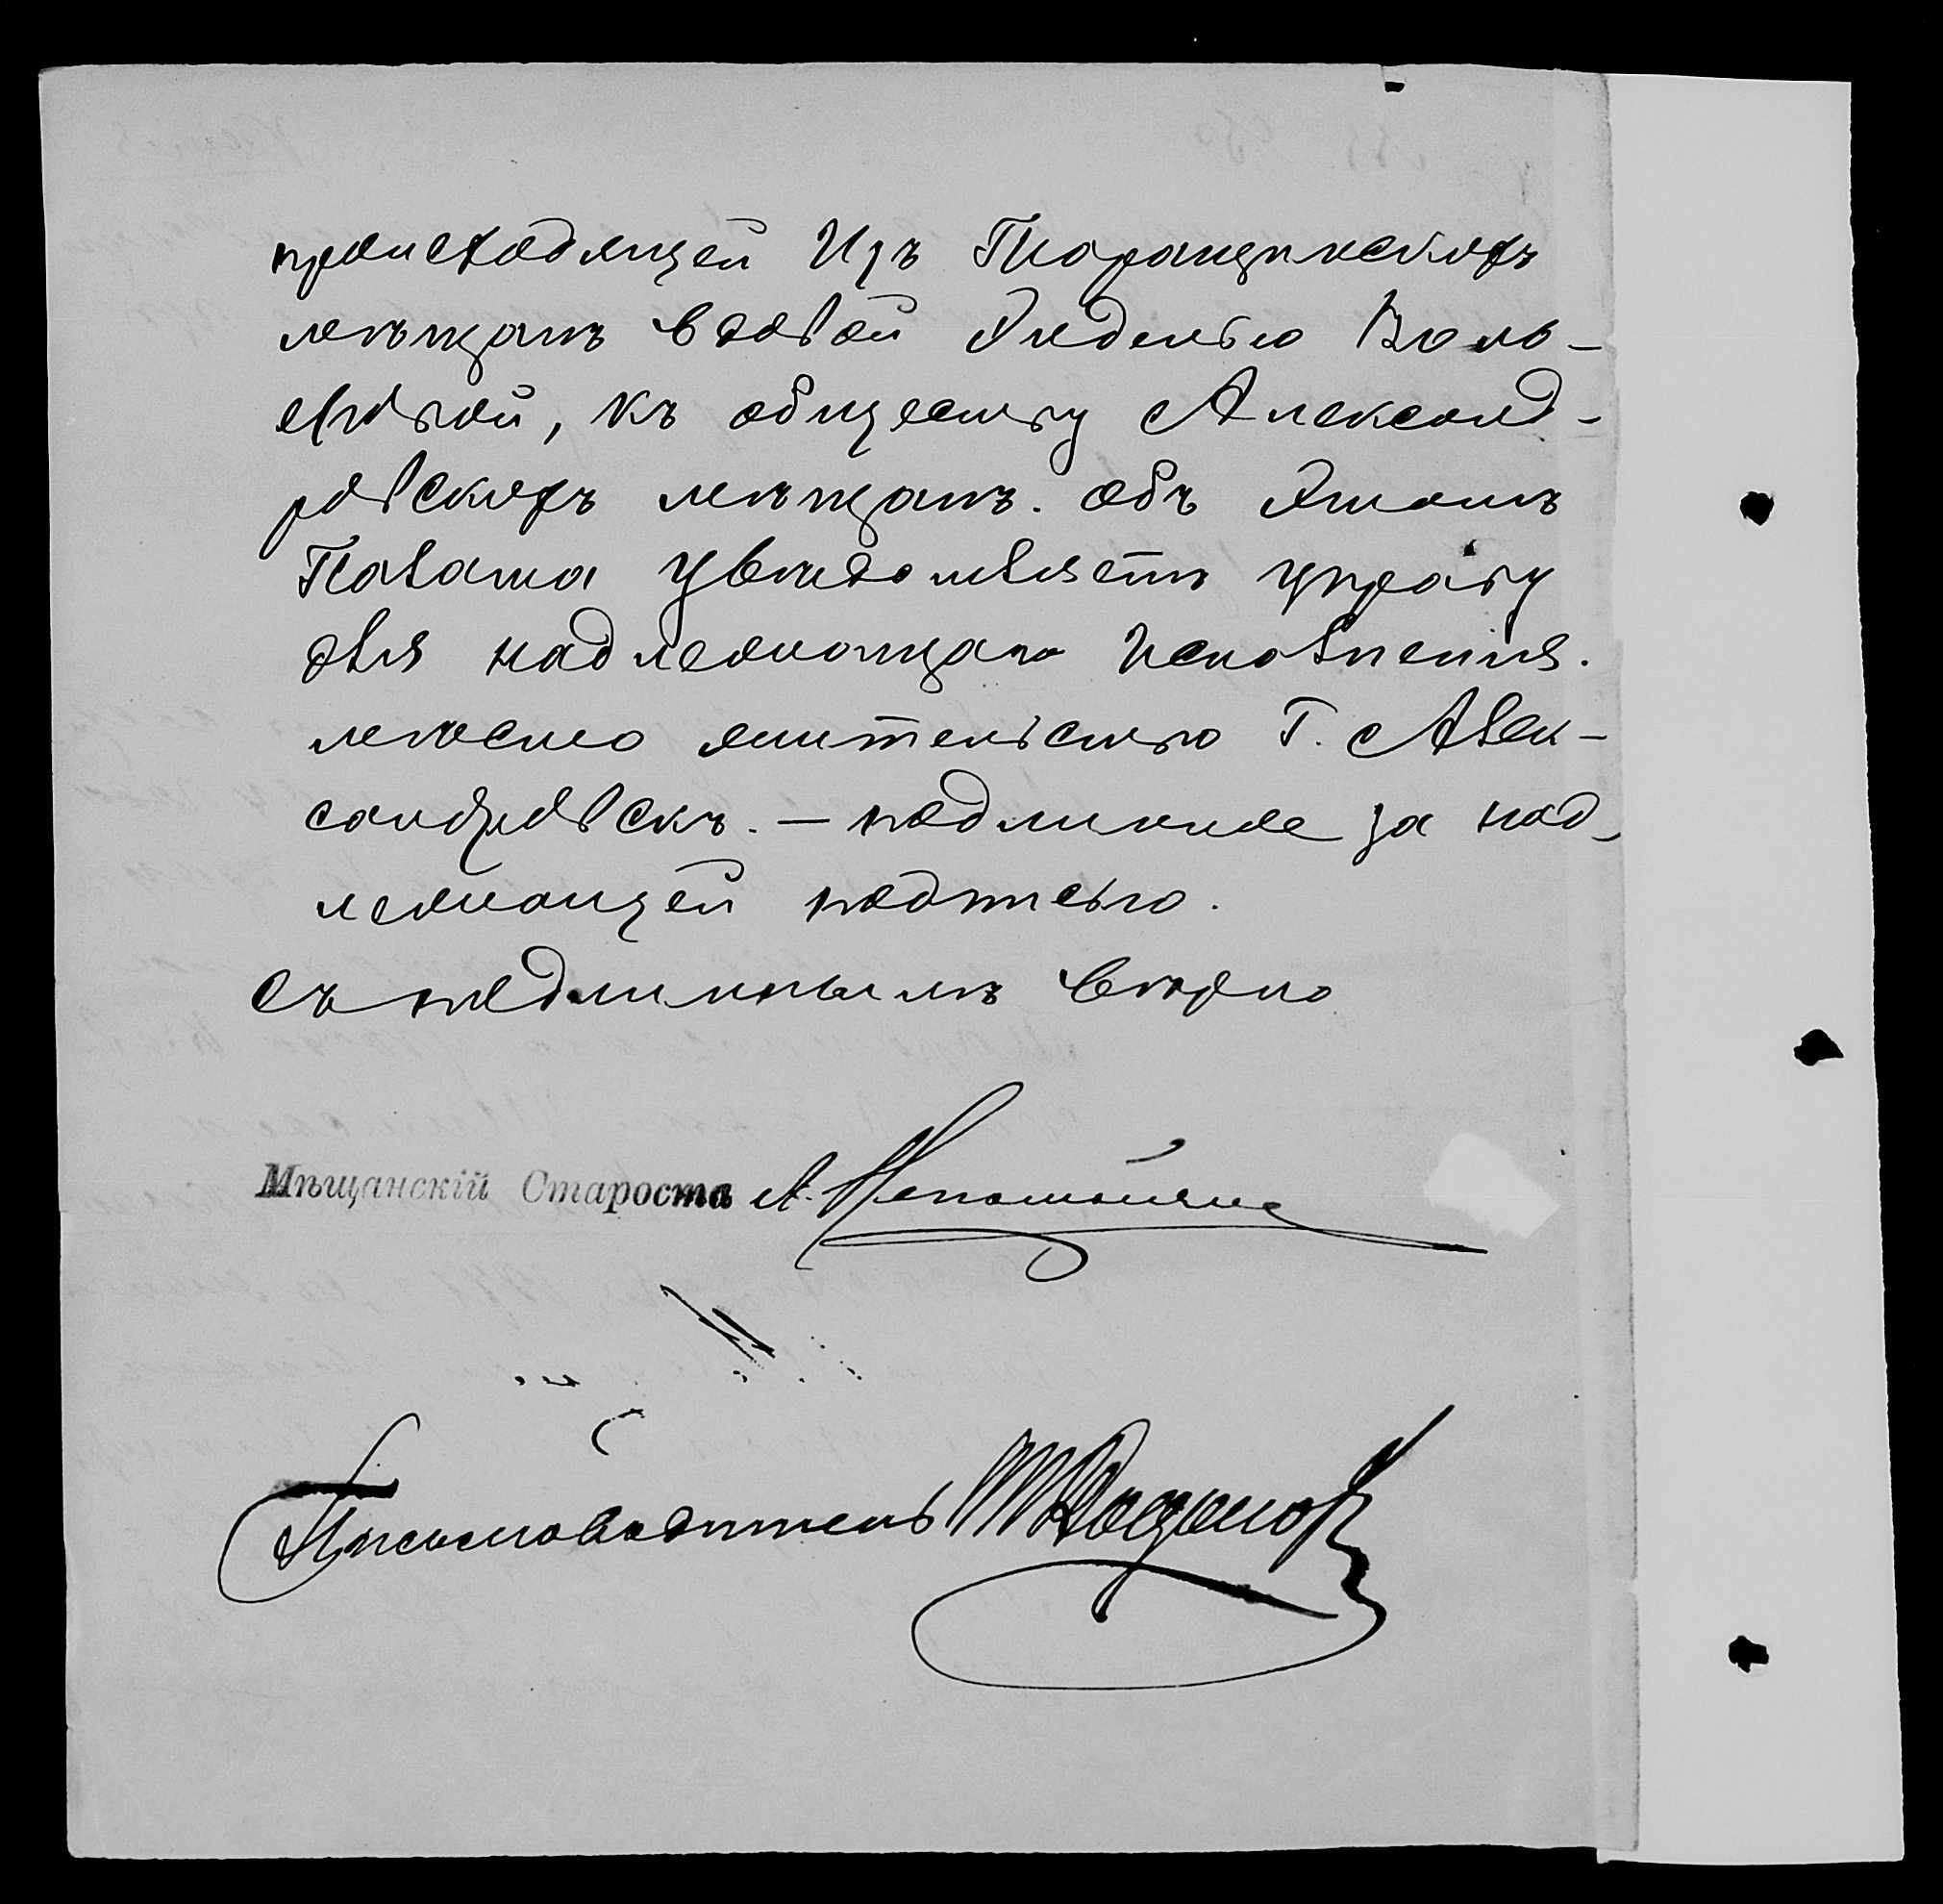 происходящей Изъ Таращинскихъ
мѣщанъ вдовой Эйделью Воль-
фовой, къ обществу Александ-
ровскихъ мѣщанъ. Объ Этомъ
Палата Увѣдомляетъ управу
для надлежащаго Исполненія.
мѣсто жительство Г. Алек-
сандровскъ. — подлинное за над-
лежащей подписью.
съ подлиннымъ вѣрно
Мѣщанскій Староста А.
Письмоводитель